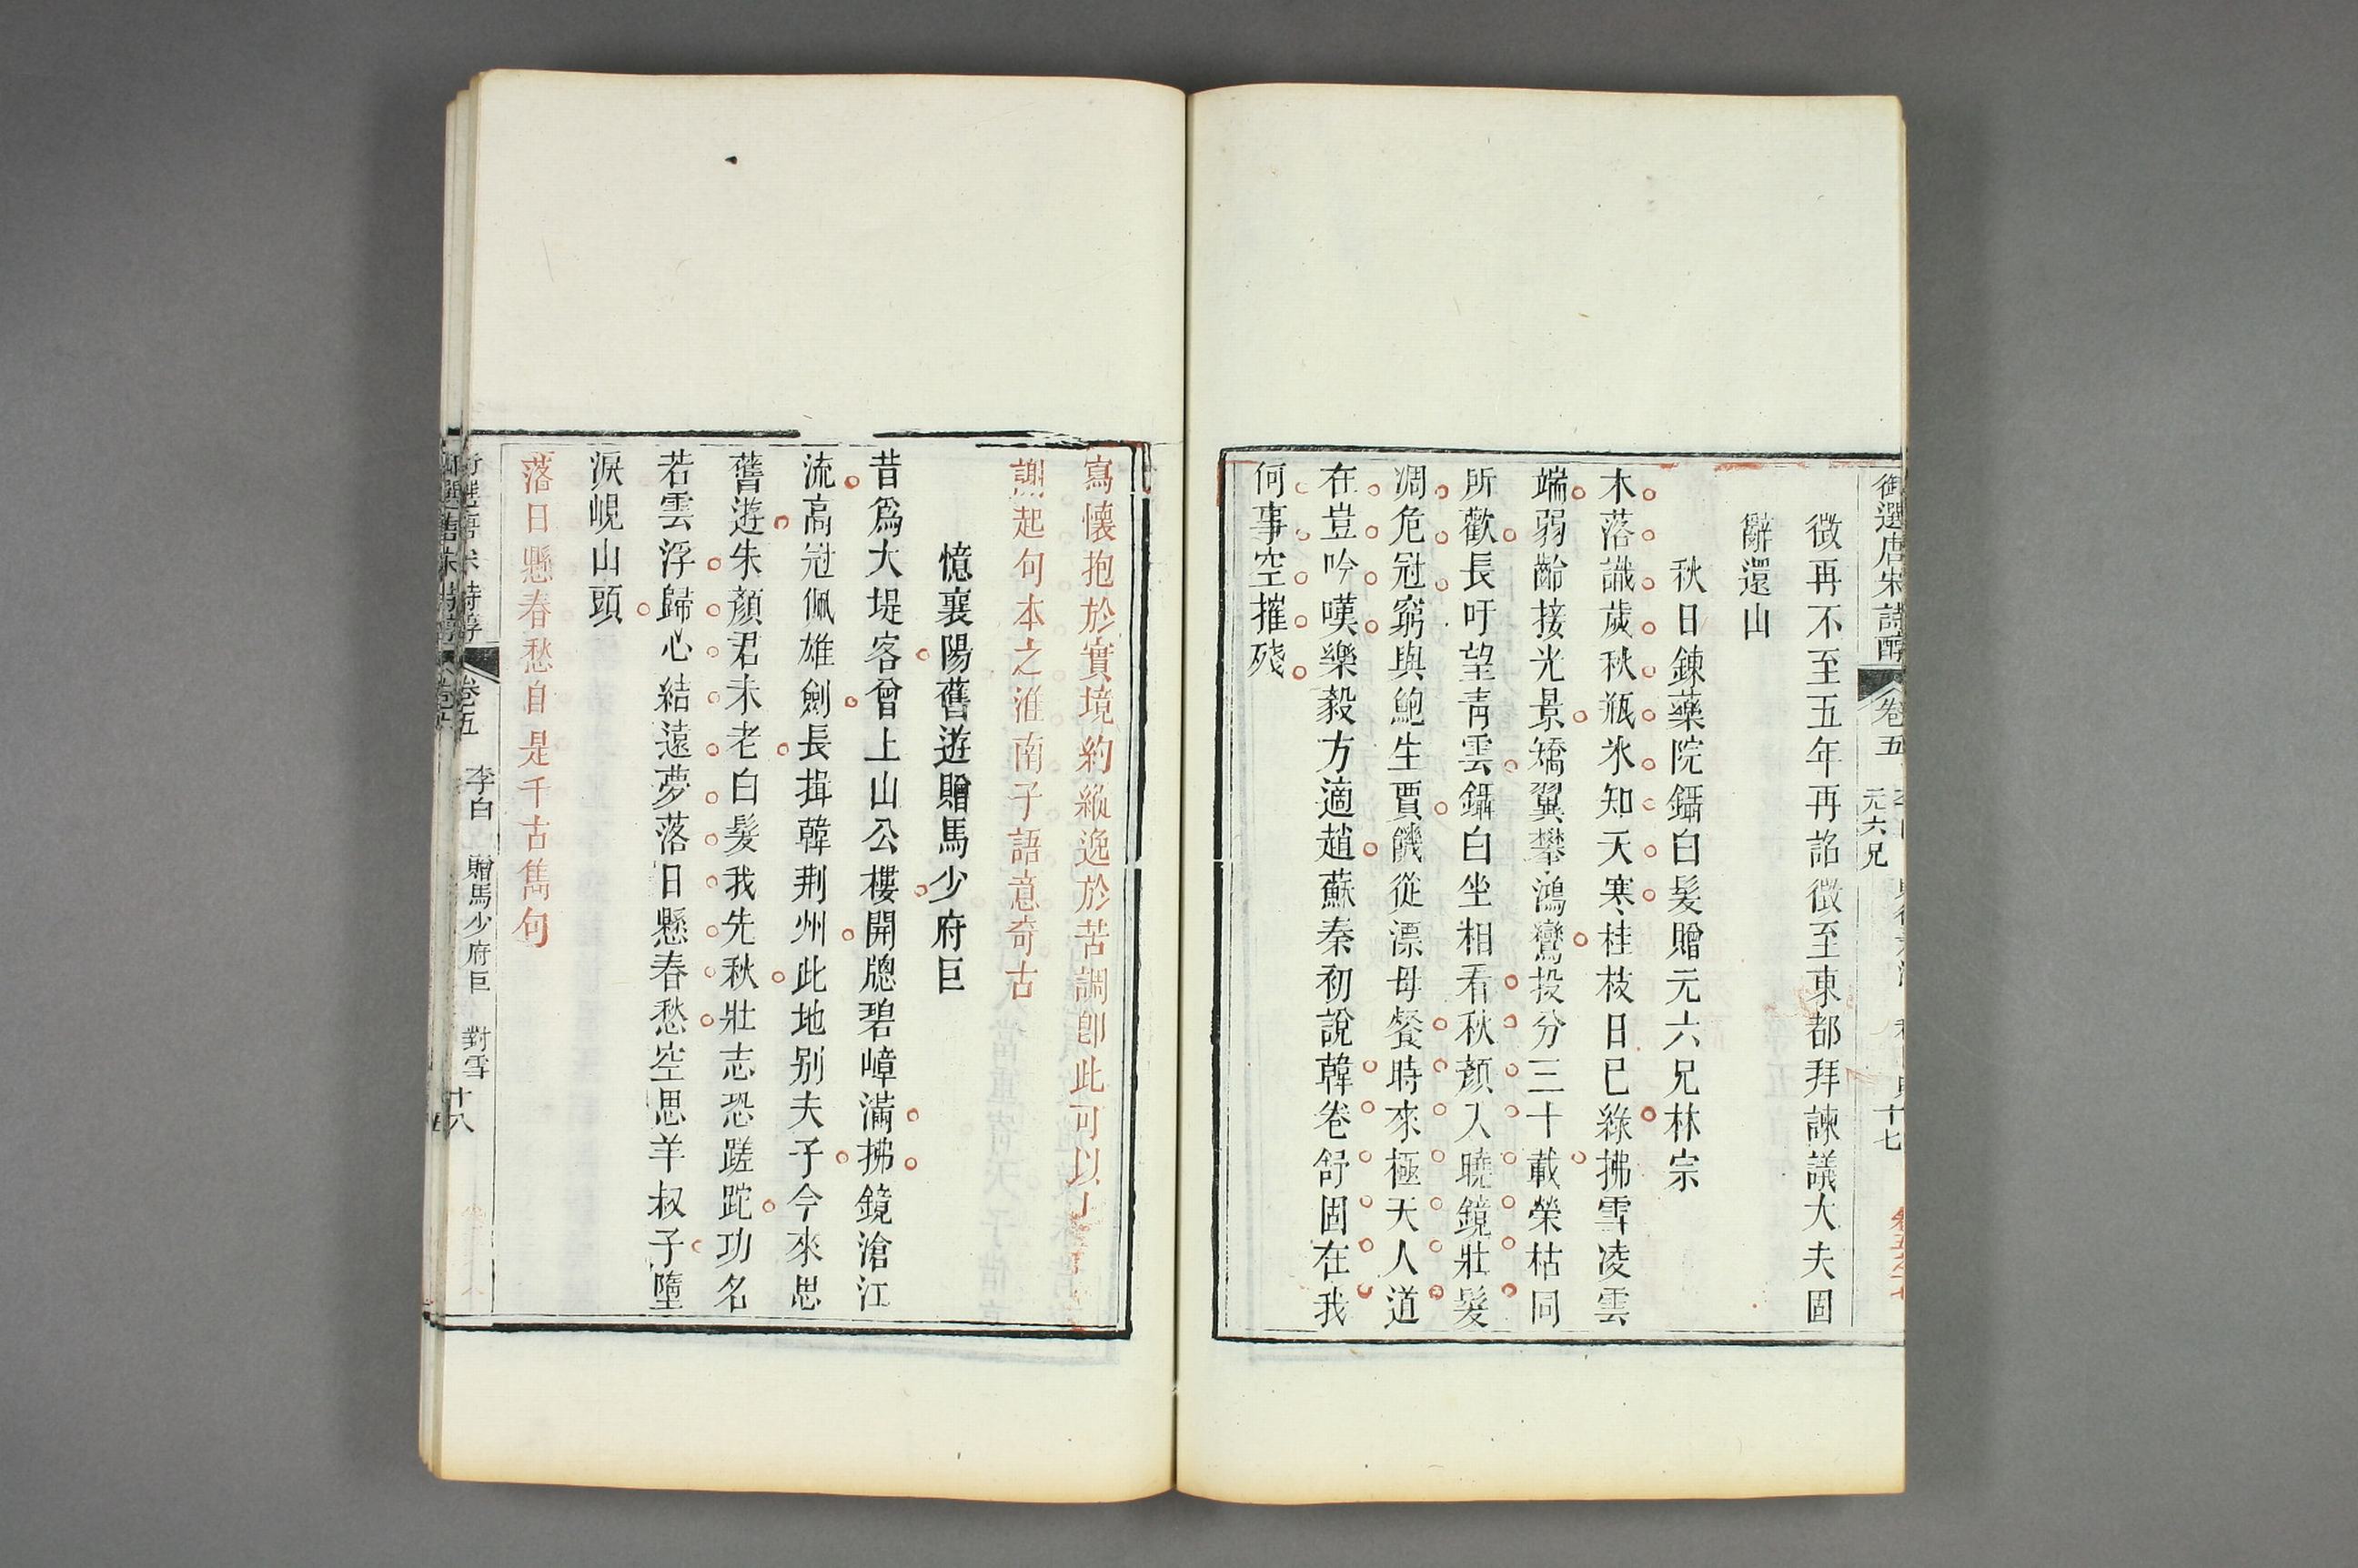 御選唐宋詩醇
卷五
元六兄
十七
徵再不至五年再詔徵至東都拜諫議大夫固
辭還山
秋日鍊藥院鑷白髮贈元六兄林宗
木落識歲秋瓶氷知天寒桂枝日已綠拂雪凌雲
端弱齡接光景矯翼攀鴻鸞投分三十載榮枯同
所歡長吁望青雲鑷白坐相看秋顏入曉鏡壯髮
凋危冠窮與鮑生賈饑從漂母餐時來極天人道
在豈吟嘆樂毅方適趙蘇秦初說韓卷舒固在我
何事空摧殘
寫懷抱於實境約縱逸於苦調卽此可以
謝起句本之淮南子語意奇古
憶襄陽舊遊贈馬少府巨
昔爲大堤客曾上山公樓開牕碧嶂滿拂鏡滄江
流高冠佩雄劍長揖韓荆州此地別夫子今來思
舊遊朱顏君未老白髮我先秋壯志恐蹉跎功名
若雲浮歸心結遠夢落日懸春愁空思羊叔子墮
淚峴山頭
落日懸春愁自是千古雋句
卷五
李白
贈馬少府巨
對雪
十八